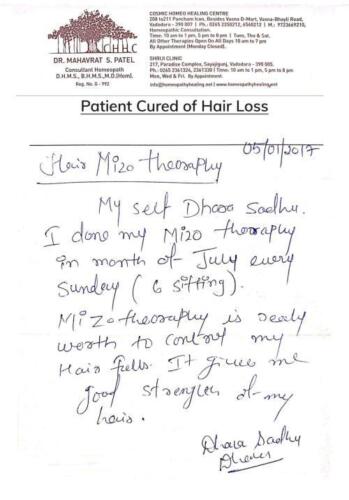 CHHC
DR. MAHAVRAT S. PATEL
Consultant Homeopath
D.H.M.S., B.H.M.S., M.D.(Hom).
Reg. No. G - 992
COSMIC HOMEO HEALING CENTRE
208 to211 Pancham Icon, Besides Vasna D-Mart, Vasna-Bhayli Road,
Vadodara - 390 007
Homeopathic Consultation.
Time: 10 am to 1 pm, 5 pm to 8 pm | Tues, Thu & Sat.
All Other Therapies Open On All Days 10 am to 7 pm
By Appointment (Monday Closed).
SHRIJI CLINIC
217, Paradise Complex, Sayajigunj, Vadodara - 390 005.
Ph.: 0265 2361324, 2361330 | Time: 10 am to 1 pm, 5 pm to 8 pm
Mon, Wed & Fri. By Appointment.
info@homeopathyhealing.net | www.homeopathyhealing.net
Patient Cured of Hair Loss
05/01/2017
Hair Mizo theoraphy
My self Dhara Sadhu.
I done my Mizo theoraphy
in month of July every
Sunday ( 6 sitting).
Mizo theoraphy is really
worth to control my
Hair falls. It gives me
good strength of my
hairs.
Dhara Sadhu